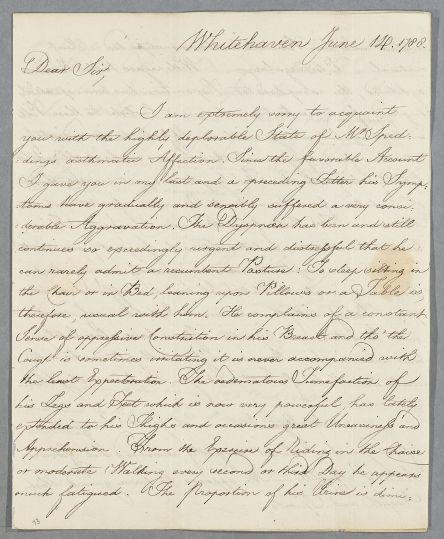 Whitehaven June 14. 1788.
Dear Sir
I am extremely sorry to acquaint
you with the highly deplorable State of Mr Sped-
ding's asthmatic Affection. Since the favorable Account
I gave you in my last and a preceding Letter his Symp-
toms have gradually and sensibly suffered a very consi-
derable Aggravation. The Dyspnœa has been and still
continues so exceedingly urgent and distressful that he
can rarely admit a recumbent Posture: To sleep sitting in
the Chair or in Bed leaning upon Pillows or a Table is,
therefore, usual with him. He complains of a constant
Sense of oppressive Constriction in his Breast and tho' the
Cough is sometimes irritating it is never accompanied with
the least Expectoration. The œdematous Tumefaction of
his Legs and Feet which is now very powerful has lately
extended to his Thighs and occasions great Uneasiness and
Apprehension. From the Exercise of Riding in the Chaise
or moderate Walking every second or third Day he appears
much fatigued. The Proportion of his Urine is dimi-